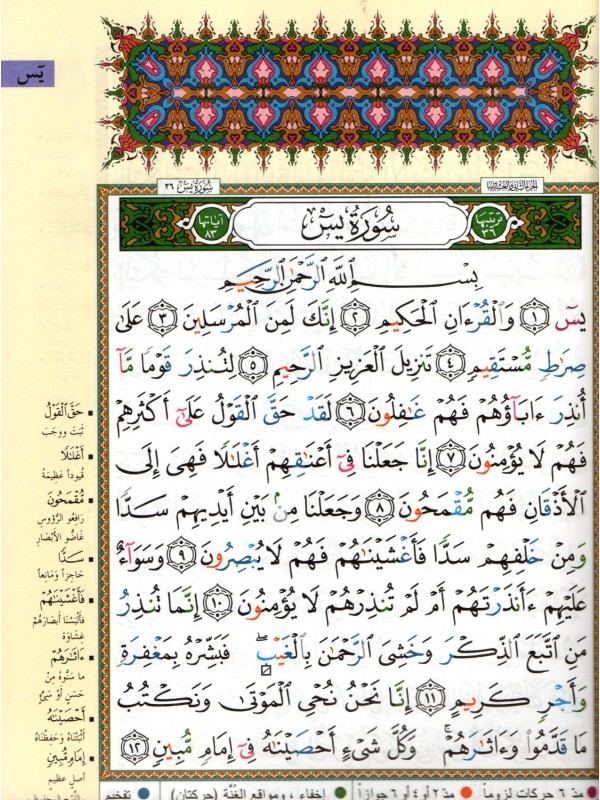 يسٓ
سُورَةُ يسٓ ٣٦
الجزء الثاني والعشرون
آياتها ٨٣
سُورَةُ يسٓ
ترتيبها ٣٦
بِسْمِ ٱللَّهِ ٱلرَّحْمَٰنِ ٱلرَّحِيمِ
يسٓ ١ وَٱلْقُرْءَانِ ٱلْحَكِيمِ ٢ إِنَّكَ لَمِنَ ٱلْمُرْسَلِينَ ٣ عَلَىٰ
صِرَٰطٍ مُّسْتَقِيمٍ ٤ تَنزِيلَ ٱلْعَزِيزِ ٱلرَّحِيمِ ٥ لِتُنذِرَ قَوْمًا مَّآ
أُنذِرَ ءَابَآؤُهُمْ فَهُمْ غَٰفِلُونَ ٦ لَقَدْ حَقَّ ٱلْقَوْلُ عَلَىٰٓ أَكْثَرِهِمْ
فَهُمْ لَا يُؤْمِنُونَ ٧ إِنَّا جَعَلْنَا فِىٓ أَعْنَٰقِهِمْ أَغْلَٰلًا فَهِىَ إِلَى
ٱلْأَذْقَانِ فَهُم مُّقْمَحُونَ ٨ وَجَعَلْنَا مِنۢ بَيْنِ أَيْدِيهِمْ سَدًّا
وَمِنْ خَلْفِهِمْ سَدًّا فَأَغْشَيْنَٰهُمْ فَهُمْ لَا يُبْصِرُونَ ٩ وَسَوَآءٌ
عَلَيْهِمْ ءَأَنذَرْتَهُمْ أَمْ لَمْ تُنذِرْهُمْ لَا يُؤْمِنُونَ ١٠ إِنَّمَا تُنذِرُ
مَنِ ٱتَّبَعَ ٱلذِّكْرَ وَخَشِىَ ٱلرَّحْمَٰنَ بِٱلْغَيْبِ ۖ فَبَشِّرْهُ بِمَغْفِرَةٍ
وَأَجْرٍ كَرِيمٍ ١١ إِنَّا نَحْنُ نُحْىِ ٱلْمَوْتَىٰ وَنَكْتُبُ
مَا قَدَّمُوا۟ وَءَاثَٰرَهُمْ ۚ وَكُلَّ شَىْءٍ أَحْصَيْنَٰهُ فِىٓ إِمَامٍ مُّبِينٍ ١٢
حَقَّ ٱلْقَوْلُ
ثَبَتَ ووجَبَ
أَغْلَٰلًا
قُيوداً عَظِيمَةً
مُّقْمَحُونَ
رَافِعُو الرُّؤُوسِ
غَاضُّو الأَبْصَارِ
سَدًّا
حَاجِزاً وَمَانِعاً
فَأَغْشَيْنَٰهُمْ
فَأَلْبَسْنَا أَبْصَارَهُمْ
غِشَاوَةً
ءَاثَٰرَهُمْ
ما سَنُّوهُ مِنْ
حَسَنٍ أَوْ سَيِّئٍ
أَحْصَيْنَٰهُ
أَثْبَتْنَاهُ وَحَفِظْنَاهُ
إِمَامٍ مُّبِينٍ
أصلٍ عظيمٍ
مدّ ٦ حركات لزوماً ● مدّ ٢ أو ٤ أو ٦ جوازاً ● إخفاء ، ومواقع الغُنَّة (حركتان) ● تفخيم